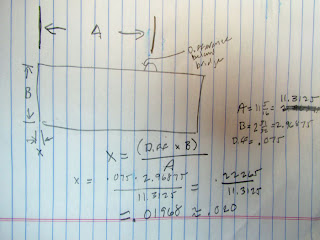 A
Difference
below
bridge
B
x
11.3125
A = 11 5/16 =
B = 2 31/32 = 2.96875
Diff = .075
X = (Diff x B) / A
x = .075 · 2.96875 / 11.3125 = .22265 / 11.3125
= .01968 ≈ .020